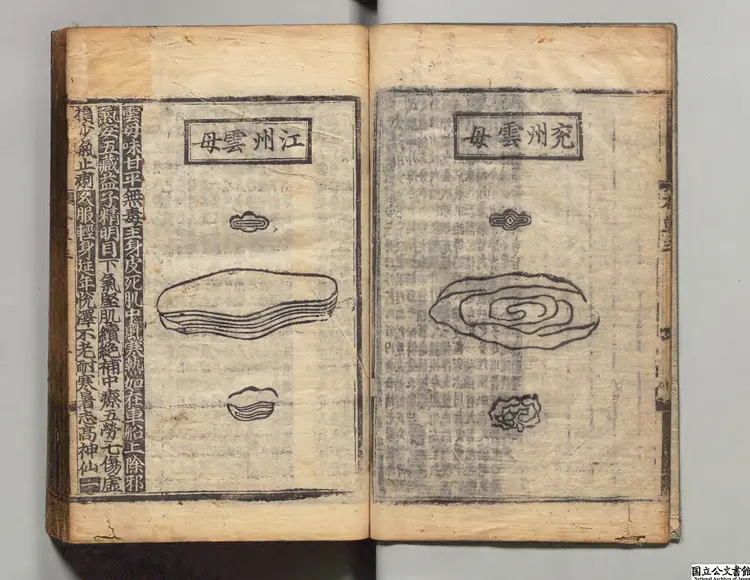 兖州雲母
江州雲母
雲母味甘平無毒主身皮死肌中風寒熱如在車船上除邪
氣安五藏益子精明目下氣堅肌續絕補中療五勞七傷虛
損少氣止痢久服輕身延年悅澤不老耐寒暑志高神仙一
国立公文書館
National Archives of Japan